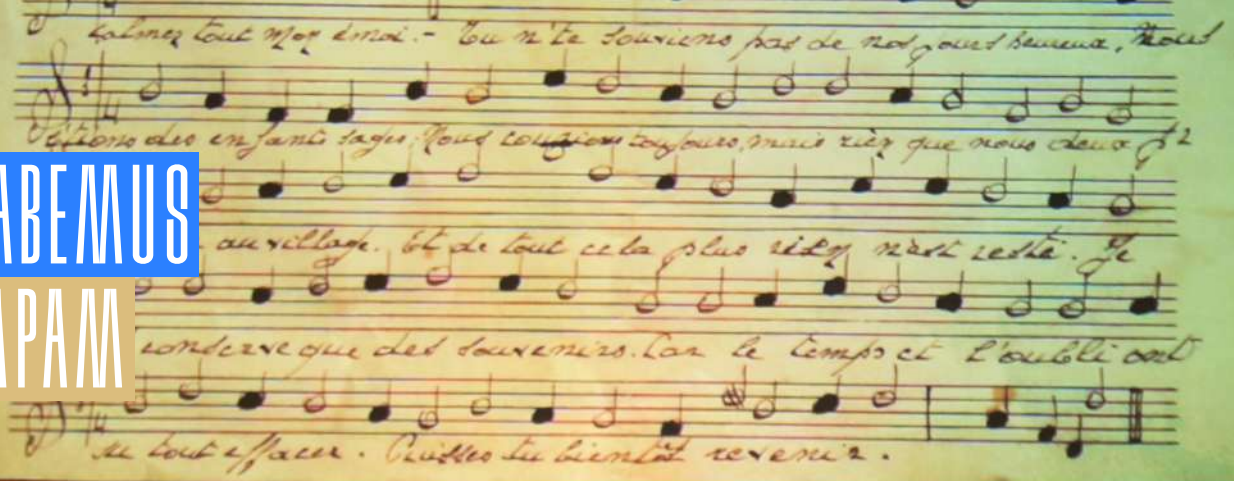 calmez tout mon émoi. - Tu n'te souviens pas de nos jours heureux, Nous
étions des enfants sages. Nous toujours, mais rien que nous deux
ABEMUS
au village. Et de tout cela plus rien n'est resté. Je
APAM
conserve que des souvenirs. Car le temps et l'oubli ont
su tout effacer. Puisses tu bientôt revenir.